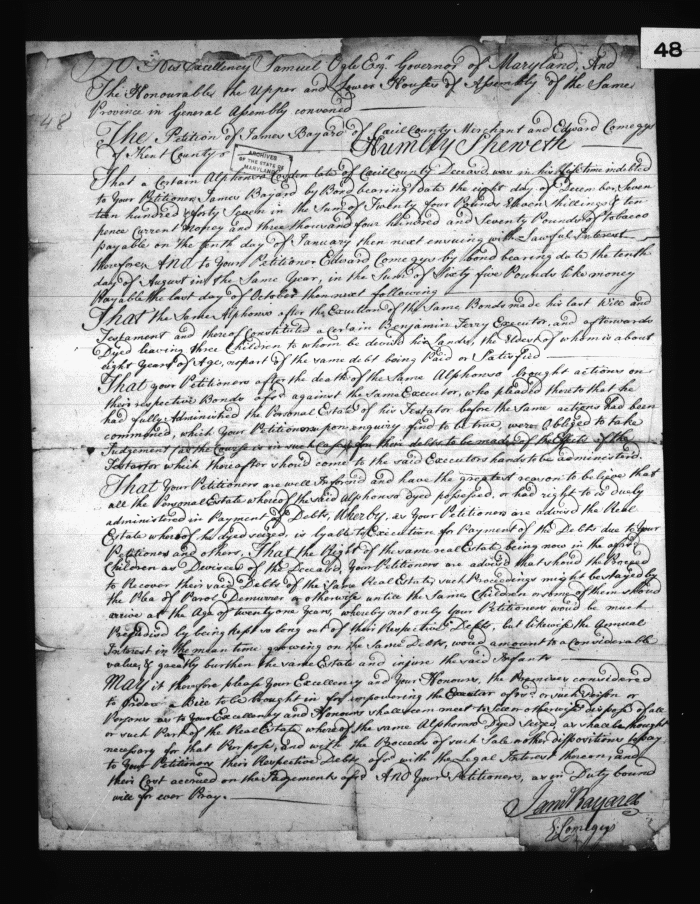 48
To His Excellency Samuel Ogle Esqr. Governor of Maryland, And
The Honourable the Upper and Lower Houses of Assembly of the Same
Province in General Assembly convened
48
The Petition of James Bayard of Cæcil County Merchant and Edward Comegys
of Kent County
Humbly Sheweth
ARCHIVES
OF THE STATE OF
MARYLAND
That a Certain Alphonso Cosden late of Cæcil County Deceased, was in his life time indebted
to Your Petitioner James Bayard by Bond bearing Date the eight day of December Seven
teen hundred & forty Seven in the Sum of Twenty four Pounds Eleven Shillings & ten
pence Current Money and three thousand four hundred and Seventy Pounds of tobacco
payable on the tenth day of January then next ensuing with Lawful Interest
therefore, And to Your Petitioner Edward Comegys by bond bearing date the tenth
day of August in the Same Year, in the Sum of Sixty five Pounds like money
Payable the last day of October then next following
That the Same Alphonso after the Execution of the Same Bonds made his last Will and
Testament and thereof Constituted a Certain Benjamin Terry Executor, and afterwards
Dyed leaving three Children to whom he devised his Lands, the Eldest of whom is about
eight Years of Age, no part of the same debt being Paid or Satisfied
That your Petitioners after the death of the Same Alphonso brought actions on
their respective Bonds afsd against the Same Executor, who pleaded thereto that he
had fully Administred the Personal Estate of his Testator before the Same actions had been
commenced, which Your Petitioners upon enquiry find to be true, were Obliged to take
Judgement (as the Course is in such cases) for their debts to be made of the Effects of the
Testator which thereafter should come to the said Executors hands to be administered.
That Your Petitioners are well Informed and have the greatest reason to believe that
all the Personal Estate whereof the said Alphonso dyed possessed, or had right to is duely
administered in Payment of Debts, Wherby, as Your Petitioners are advised the Real
Estate whereof he dyed seized, is lyable to Execution for Payment of the Debts due to Your
Petitioners and others, That the Right of the same real Estate being now in the afsd
Children as Devisees of the Deceased, Your Petitioners are advised that should they Proceed
to Recover their said Debts of the Same Real Estate, such Proceedings might be stayed by
the Plea of Parol Demurrer or otherwise untill the Same Children or some of them should
arrive at the Age of twenty one Years, whereby not only Your Petitioners would be much
Prejudiced by being kept so long out of their Respective Debts, but likewise the Annual
Interest in the mean time growing on the Same Debts, would amount to a Considerable
value, & greatly burthen the same Estate and injure the said Infants
May it therefore please Your Excellency and Your Honours, the Premises considered
to Order a Bill to be brought in for impowering the Executor afsd or such Person or
Persons as to Your Excellency and Honours shall seem meet to Sell or otherwise dispose of all
or such Part of the Real Estate whereof the same Alphonso Dyed Seized, as shall be thought
necessary for that Purpose, And with the Proceeds of such Sale or other dispositions to pay
to Your Petitioners their Respective Debts afsd with the Legal Interest thereon, and
their Cost accrued on the Judgements afsd And Your Petitioners, as in Duty bound
will for ever Pray.
Jam Bayard
E: Comegys